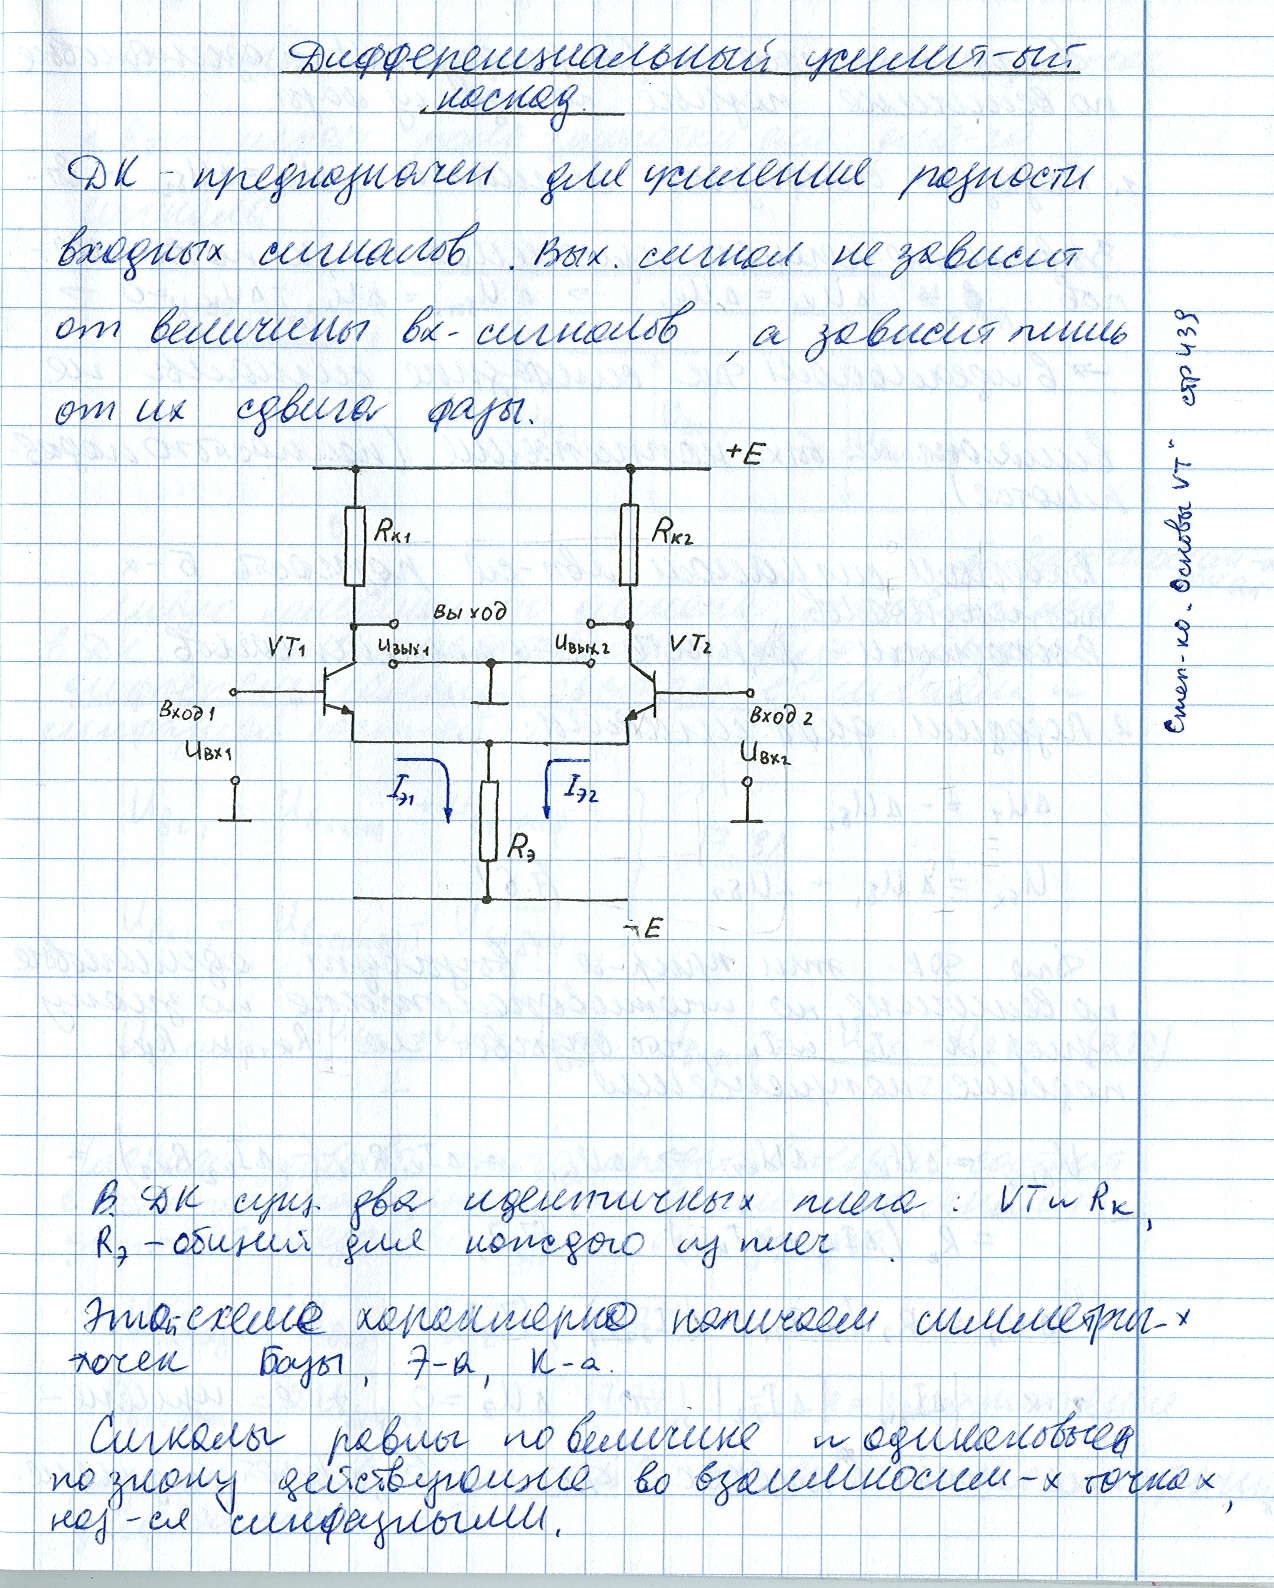 Дифференциальный усилит-ый
каскад.
ДК - предназначен для усиление разности
входных сигналов. Вых. сигнал не зависит
от величины вх-сигналов, а зависит лишь
от их сдвига фазы.
+E
Rк1
Rк2
Выход
VT1
Uвых1
Uвых2
VT2
Вход1
Вход2
Uвх1
Uвх2
Iэ1
Iэ2
Rэ
-E
В ДК сущ. два идентичных плеча: VT и Rк,
Rэ - общий для каждого из плеч.
Этой схеме характерно наличаем симметри-х
точек Базы, Э-а, К-а.
Сигналы равны по величине и одинаковые
по знаку действующие во взаимносим-х точках,
наз-ся синфазными.
Степ-ко-Основы VT" стр 439